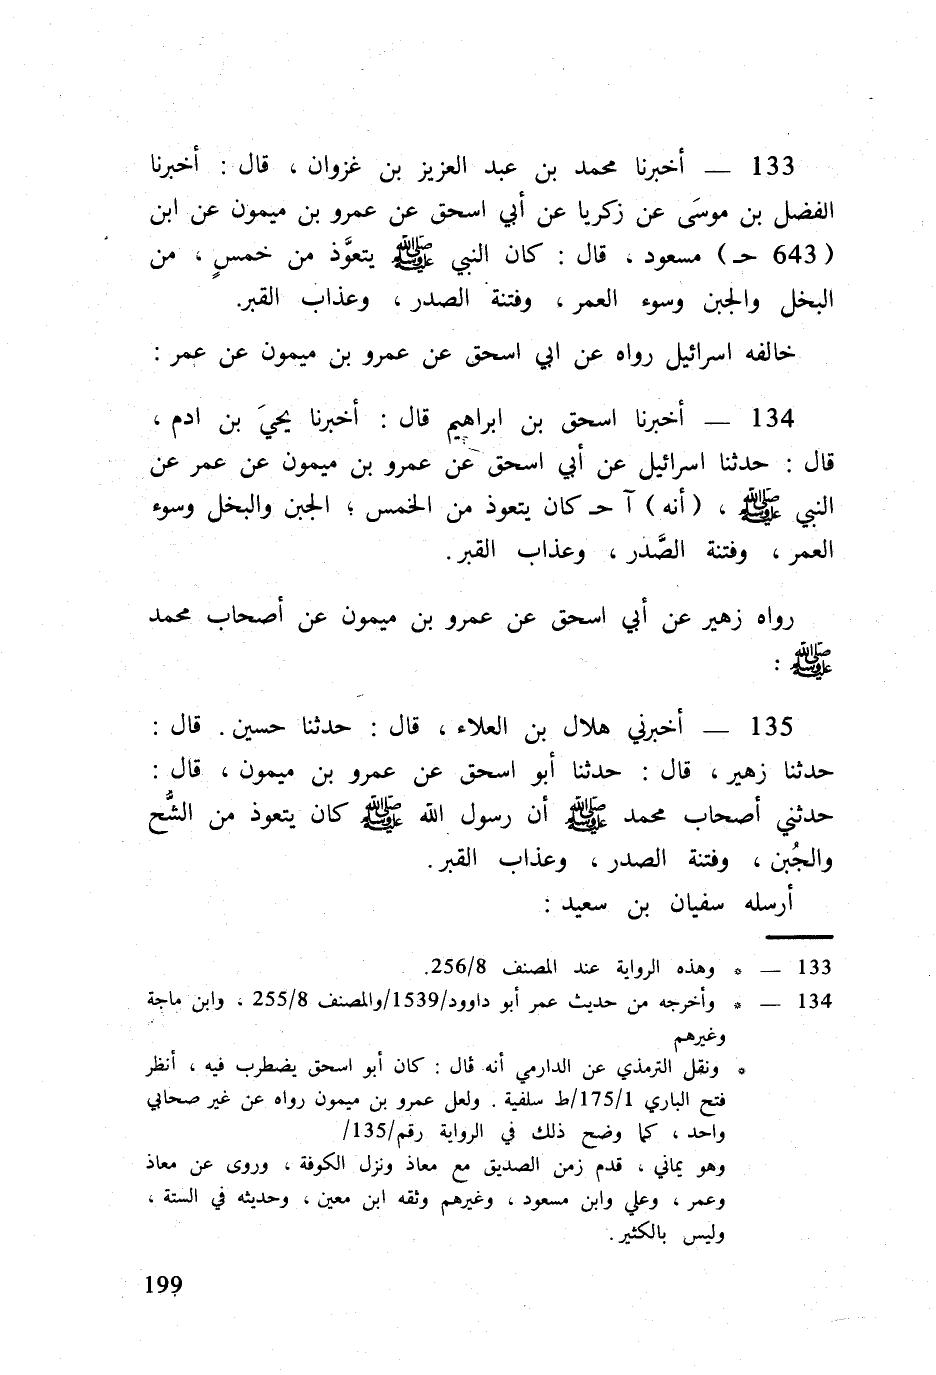 133 — أخبرنا محمد بن عبد العزيز بن غزوان ، قال : أخبرنا
الفضل بن موسَى عن زكريا عن أبي اسحق عن عمرو بن ميمون عن ابن
( 643 حـ ) مسعود ، قال : كان النبي ﷺ يتعوَّذ من خمسٍ ، من
البخل والجبن وسوء العمر ، وفتنة الصدر ، وعذاب القبر.
خالفه اسرائيل رواه عن ابي اسحق عن عمرو بن ميمون عن عمر :
134 — أخبرنا اسحق بن ابراهيم قال : أخبرنا يحيَ بن ادم ،
قال : حدثنا اسرائيل عن أبي اسحق عن عمرو بن ميمون عن عمر عن
النبي ﷺ ، ( أنه ) آ حـ كان يتعوذ من الخمس ؛ الجبن والبخل وسوء
العمر ، وفتنة الصَّدر ، وعذاب القبر .
رواه زهير عن أبي اسحق عن عمرو بن ميمون عن أصحاب محمد
ﷺ :
135 — أخبرني هلال بن العلاء ، قال : حدثنا حسين . قال :
حدثنا زهير ، قال : حدثنا أبو اسحق عن عمرو بن ميمون ، قال :
حدثني أصحاب محمد ﷺ أن رسول الله ﷺ كان يتعوذ من الشُّح
والجُبن ، وفتنة الصدر ، وعذاب القبر .
أرسله سفيان بن سعيد :
133 — * وهذه الرواية عند المصنف 256/8.
134 — * وأخرجه من حديث عمر أبو داوود/1539/والمصنف 255/8 ، وابن ماجة
وغيرهم
* ونقل الترمذي عن الدارمي أنه قال : كان أبو اسحق يضطرب فيه ، أنظر
فتح الباري 175/1/ط سلفية . ولعل عمرو بن ميمون رواه عن غير صحابي
واحد ، كما وضح ذلك في الرواية رقم/135/
وهو يماني ، قدم زمن الصديق مع معاذ ونزل الكوفة ، وروى عن معاذ
وعمر ، وعلي وابن مسعود ، وغيرهم وثقه ابن معين ، وحديثه في الستة ،
وليس بالكثير .
199